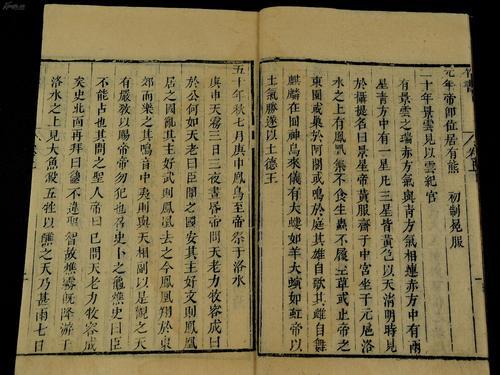 元年帝即位居有熊 初制冕服
二十年景雲見以雲紀官
有景雲之瑞赤方氣與青方氣相連赤方中有兩
星青方中有一星凡三星皆黃色以天清明時見
於攝提名曰景星帝黃服齋于中宮坐于元扈洛
水之上有鳳凰集不食生蟲不履生草或止帝之
東園或巢於阿閣或鳴於庭其雄自歌其雌自舞
麒麟在囿神鳥來儀有大螻如羊大螾如虹帝以
土氣勝遂以土德王
五十年秋七月庚申鳳鳥至帝祭于洛水
庚申天霧三日三夜晝昏帝問天老力牧容成
於公何如天老曰臣聞之國安其主好文則鳳凰
居之國亂其主好武則鳳凰去之今鳳凰翔於東
郊而樂之其鳴音中夷則與天相副以是觀之天
有嚴教以賜帝帝勿犯也召史卜之龜燋史曰臣
不能占也其問之聖人帝曰已問天老力牧容成
矣史北面再拜曰龜不違聖智故燋霧既降游于
洛水之上見大魚殺五牲以醮之天乃甚雨七日